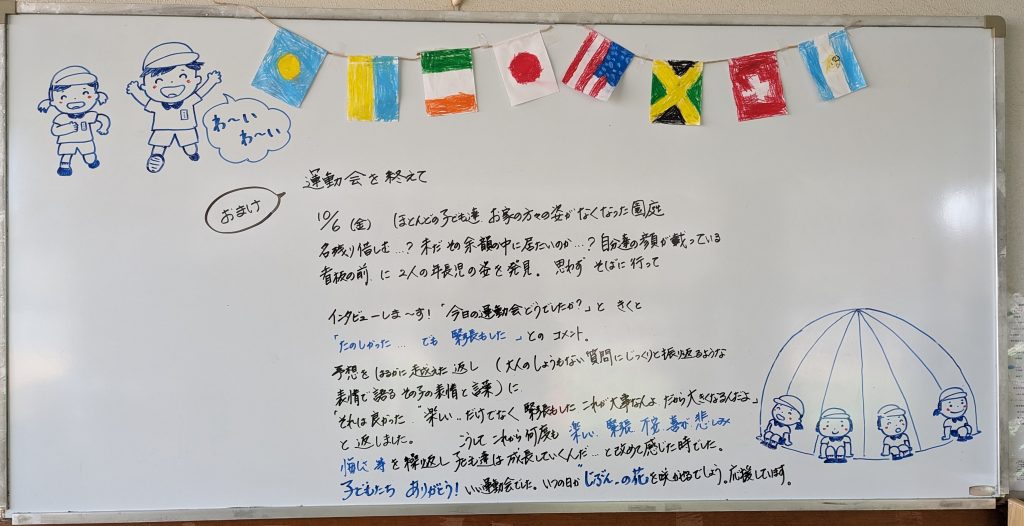 わ〜い
わ〜い
おまけ
運動会を終えて
10/6 (金) ほとんどの子ども達、お家の方々の姿がなくなった園庭
名残り惜しむ…? まだその余韻の中に居たいのか…? 自分達の顔が載っている
看板の前に2人の年長児の姿を発見。 思わず そばに行って
インタビューしま〜す!「今日の運動会どうでしたか?」と きくと
「たのしかった… でも 緊張もした 」とのコメント。
予想をはるかに超えた返し (大人のしょうもない質問にじっくりと振り返るような
表情で語る その子の表情と言葉)に
「それは良かった "楽しい…だけでなく 緊張もした これが大事なんよ だから大きくなるんだよ」
と返しました。 こうして これから何度も 楽しい、緊張、不安、喜び 悲しみ
悔しさ 等を繰り返し 子ども達は成長していくんだ…と改めて感じた時でした。
子どもたち ありがとう! いい運動会でした。いつの日か"じぶん"の花を咲かせるでしょう。応援しています。